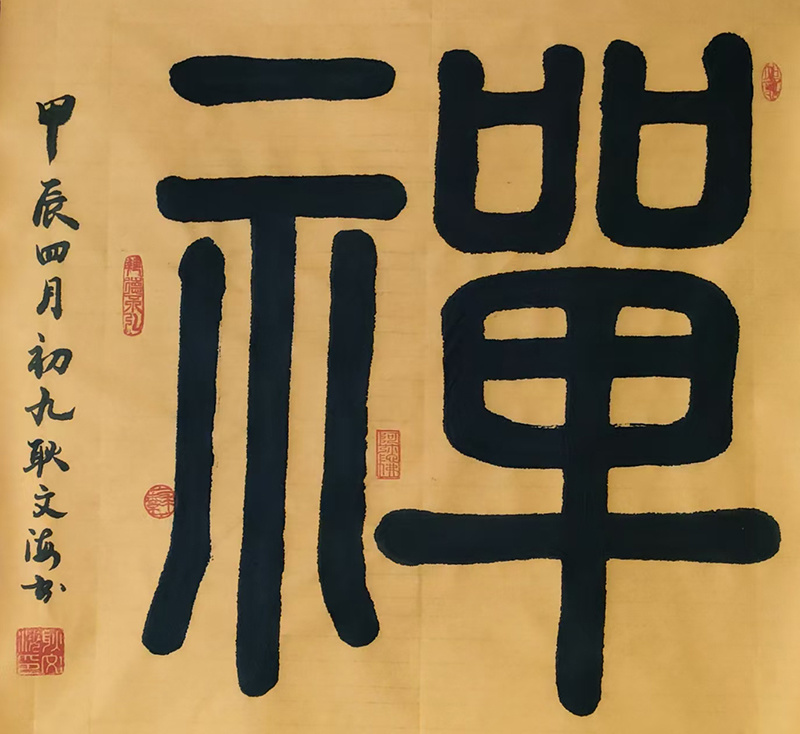 禪
甲辰四月初九耿文海书